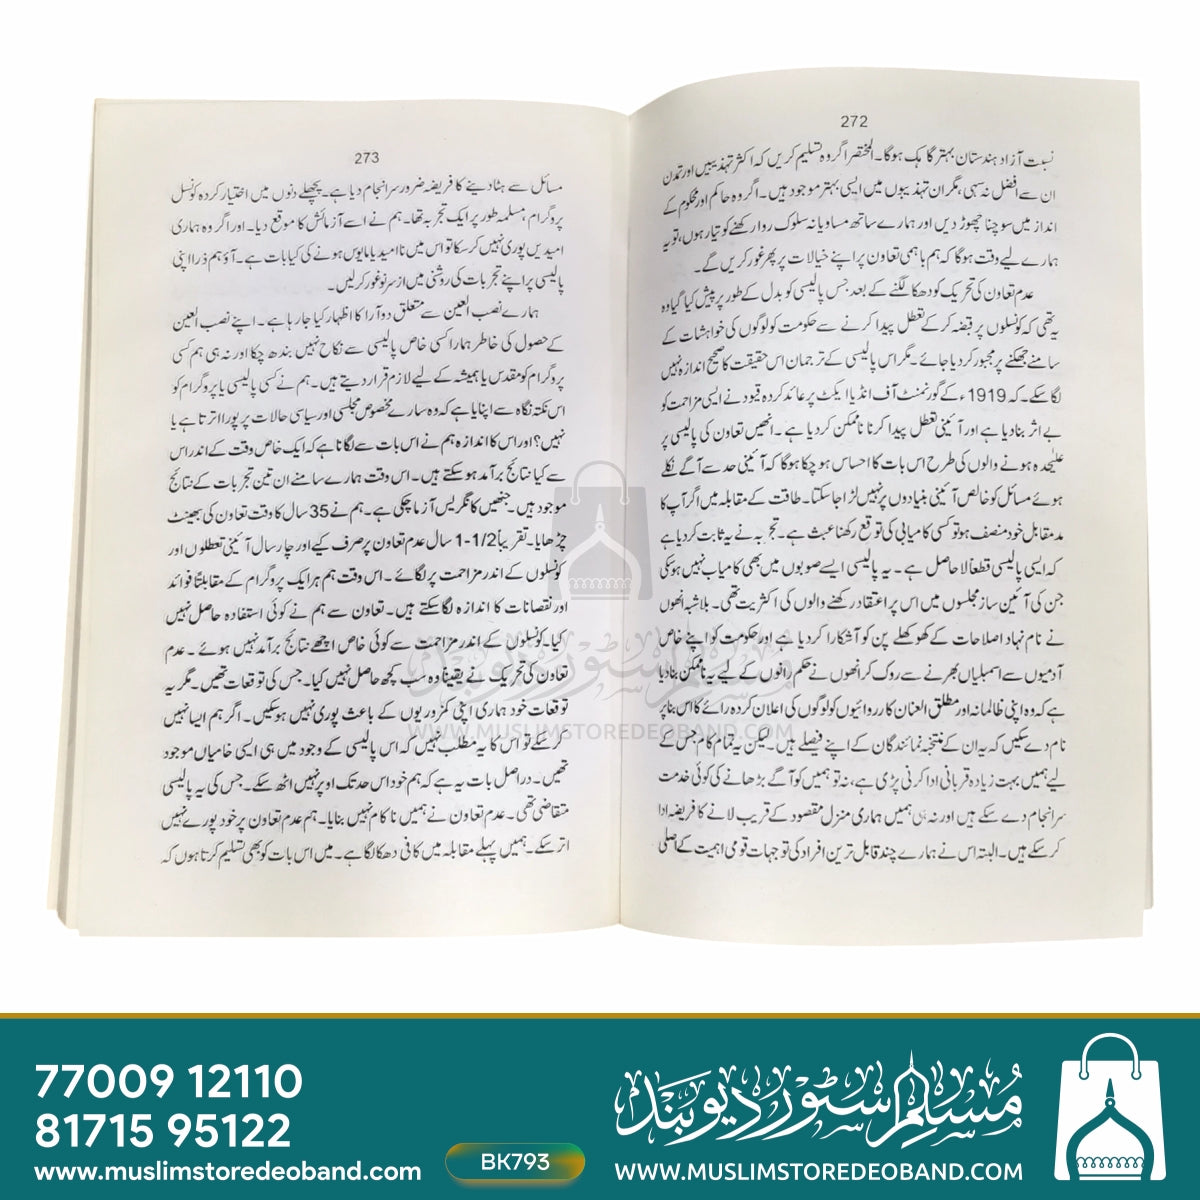 272
نسبت آزاد ہندستان بہتر گاہک ہوگا۔ المختصر اگر وہ تسلیم کریں کہ اکثر تہذیبیں اور تمدن
ان سے افضل نہ سہی، مگر ان تہذیبوں میں ایسی بہتر موجود ہیں۔ اگر وہ حاکم اور محکوم کے
انداز میں سوچنا چھوڑ دیں اور ہمارے ساتھ مساویانہ سلوک روا رکھنے کو تیار ہوں، تو یہ
ہمارے لیے وقت ہوگا کہ ہم باہمی تعاون پر اپنے خیالات پر پھر غور کریں گے۔
عدم تعاون کی تحریک کو دھکا لگنے کے بعد جس پالیسی کو بدل کے طور پر پیش کیا گیا وہ
یہ تھی کہ کونسلوں پر قبضہ کر کے تعطل پیدا کرنے سے حکومت کو لوگوں کی خواہشات کے
سامنے جھکنے پر مجبور کر دیا جائے۔ مگر اس پالیسی کے ترجمان اس حقیقت کا صحیح اندازہ نہیں
لگا سکے۔ کہ 1919ء کے گورنمنٹ آف انڈیا ایکٹ پر عائد کردہ قیود نے ایسی مزاحمت کو
بے اثر بنا دیا ہے اور آئینی تعطل پیدا کرنا ناممکن کر دیا ہے۔ انھیں تعاون کی پالیسی پر
علیٰحدہ ہونے والوں کی طرح اس بات کا احساس ہو چکا ہوگا کہ آئینی حد سے آگے نکلے
ہوئے مسائل کو خالص آئینی بنیادوں پر نہیں لڑا جا سکتا۔ طاقت کے مقابلہ میں اگر آپ کا
مد مقابل خود منصف ہو تو کسی کامیابی کی توقع رکھنا عبث ہے۔ تجربہ نے یہ ثابت کر دیا ہے
کہ ایسی پالیسی قطعاً لاحاصل ہے۔ یہ پالیسی ایسے صوبوں میں بھی کامیاب نہیں ہو سکی
جن کی آئین ساز مجلسوں میں اس پر اعتقاد رکھنے والوں کی اکثریت تھی۔ بلاشبہ انھوں
نے نام نہاد اصلاحات کے کھوکھلے پن کو آشکارا کر دیا ہے اور حکومت کو اپنے خاص
آدمیوں سے اسمبلیاں بھرنے سے روک کر انھوں نے حکم رانوں کے لیے یہ ناممکن بنا دیا
ہے کہ وہ اپنی ظالمانہ اور مطلق العنان کارروائیوں کو لوگوں کی اعلان کردہ رائے کا اس بنا پر
نام دے سکیں کہ یہ ان کے منتخبہ نمائندگان کے اپنے فیصلے ہیں۔ لیکن یہ تمام کام جس کے
لیے ہمیں بہت زیادہ قربانی ادا کرنی پڑی ہے، نہ تو ہمیں کو آگے بڑھانے کی کوئی خدمت
سرانجام دے سکے ہیں اور نہ ہی ہمیں ہماری منزل مقصود کے قریب لانے کا فریضہ ادا
کر سکے ہیں۔ البتہ اس نے ہمارے چند قابل ترین افراد کی توجہات قومی اہمیت کے اصلی
273
مسائل سے ہٹا دینے کا فریضہ ضرور سرانجام دیا ہے۔ پچھلے دنوں میں اختیار کردہ کونسل
پروگرام، مسلمہ طور پر ایک تجربہ تھا۔ ہم نے اسے آزمائش کا موقع دیا۔ اور اگر وہ ہماری
امیدیں پوری نہیں کر سکا تو اس میں ناامید یا مایوس ہونے کی کیا بات ہے۔ آؤ ہم ذرا اپنی
پالیسی پر اپنے تجربات کی روشنی میں از سر نو غور کر لیں۔
ہمارے نصب العین سے متعلق دو آرا کا اظہار کیا جا رہا ہے۔ اپنے نصب العین
کے حصول کی خاطر ہمارا کسی خاص پالیسی سے نکاح نہیں بندھ چکا اور نہ ہی ہم کسی
پروگرام کو مقدس یا ہمیشہ کے لیے لازم قرار دیتے ہیں۔ ہم نے کسی پالیسی یا پروگرام کو
اس نکتہ نگاہ سے اپنایا ہے کہ وہ سارے مخصوص مجلسی اور سیاسی حالات پر پورا اترتا ہے یا
نہیں؟ اور اس کا اندازہ ہم نے اس بات سے لگانا ہے کہ ایک خاص وقت کے اندر اس
سے کیا نتائج برآمد ہو سکتے ہیں۔ اس وقت ہمارے سامنے ان تین تجربات کے نتائج
موجود ہیں جنھیں کانگریس آزما چکی ہے۔ ہم نے 35 سال کا وقت تعاون کی بھینٹ
چڑھایا۔ تقریباً 1-1/2 سال عدم تعاون پر صرف کیے اور چار سال آئینی تعطلوں اور
کونسلوں کے اندر مزاحمت پر لگائے۔ اس وقت ہم ہر ایک پروگرام کے مقابلتاً فوائد
اور نقصانات کا اندازہ لگا سکتے ہیں۔ تعاون سے ہم نے کوئی استفادہ حاصل نہیں
کیا۔ کونسلوں کے اندر مزاحمت سے کوئی خاص اچھے نتائج برآمد نہیں ہوئے۔ عدم
تعاون کی تحریک نے یقیناً وہ سب کچھ حاصل نہیں کیا۔ جس کی توقعات تھیں۔ مگر یہ
توقعات خود ہماری اپنی کمزوریوں کے باعث پوری نہیں ہو سکیں۔ اگر ہم ایسا نہیں
کر سکے تو اس کا یہ مطلب نہیں کہ اس پالیسی کے وجود میں ہی ایسی خامیاں موجود
تھیں۔ دراصل بات یہ ہے کہ ہم خود اس حد تک اوپر نہیں اٹھ سکے۔ جس کی یہ پالیسی
متقاضی تھی۔ عدم تعاون نے ہمیں ناکام نہیں بنایا۔ ہم عدم تعاون پر خود پورے نہیں
اتر سکے۔ ہمیں پہلے مقابلہ میں کافی دھکا لگا ہے۔ میں اس بات کو بھی تسلیم کرتا ہوں کہ
مسلم سٹور دیوبند
WWW.MUSLIMSTOREDEOBAND.COM
77009 12110
81715 95122
www.muslimstoredeoband.com
BK793
مسلم سٹور دیوبند
WWW.MUSLIMSTOREDEOBAND.COM